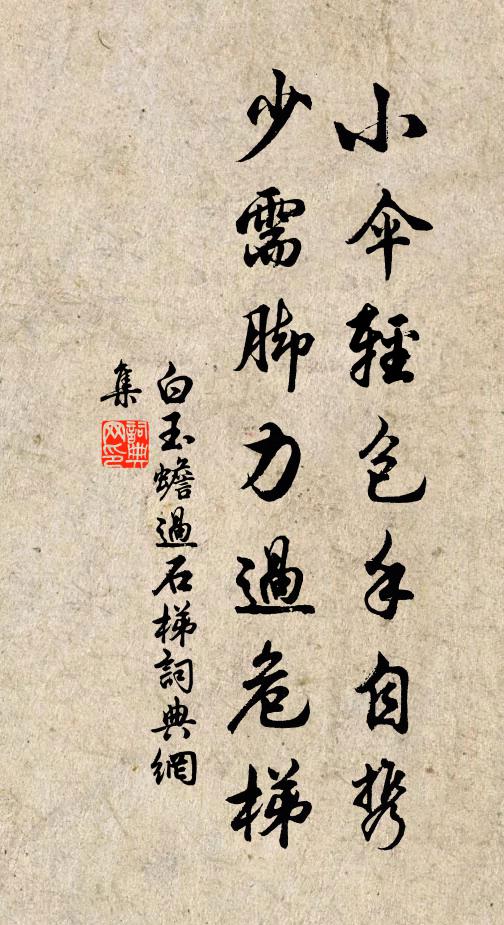 小伞輕包手自携
少需脚力過危梯
白玉蟾過石梯詞典網
集
詞典
网印